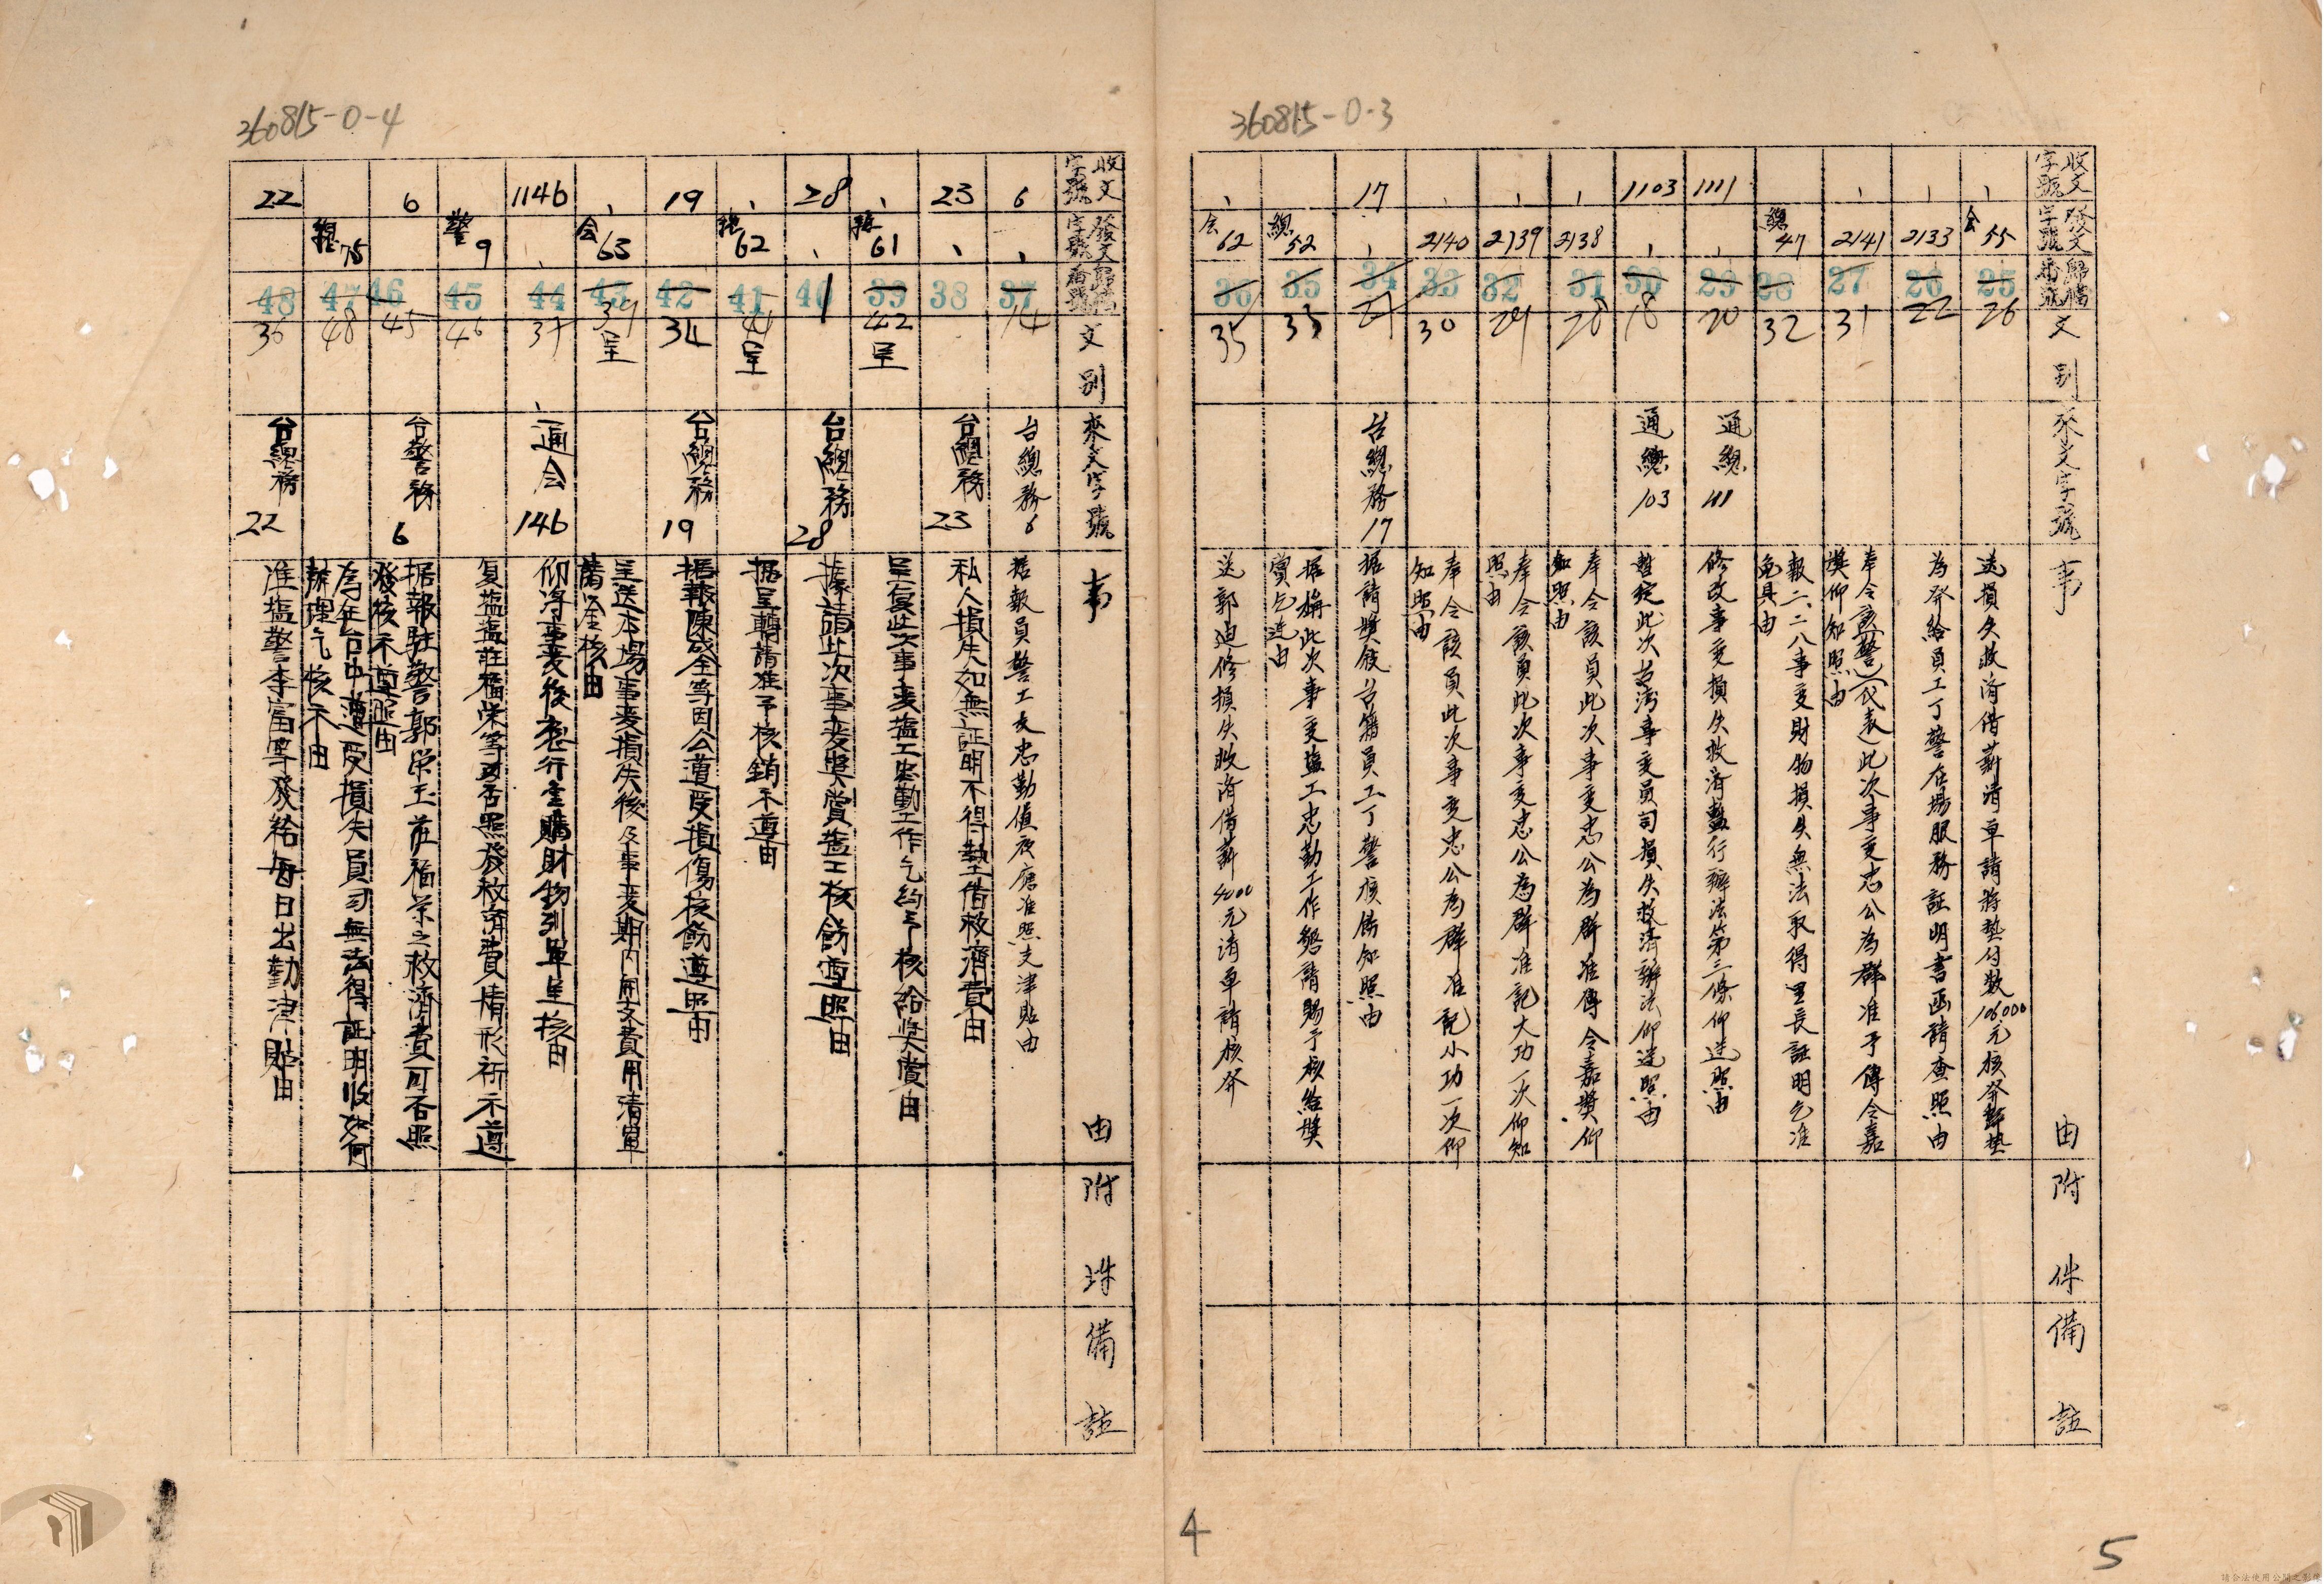 360815-0-3
收文字號
發文字號
歸檔番號
文別
來文字號
事由
附件
備註
、
会55
25
26
送損失救済借薪清單請將墊付數106,000元核發歸墊
、
2133
26
22
為發給員工丁警在場服務証明書函請查照由
、
2141
27
31
奉令該警(代表)此次事变忠公為群准予傳令嘉
獎仰知照由
總47
28
32
報二、二八事变財物損失無法取得里長証明乞准
免具由
1111
、
29
20
通總111
修改事变損失救済暫行辦法第三條仰遵照由
1103
、
30
18
通總103
暫定此次台湾事变員司損失救済辦法仰遵照由
、
2138
31
28
奉令該員此次事变忠公為群准傳令嘉獎仰
知照由
、
2139
32
29
奉令該員此次事变忠公為群准記大功一次仰知
照由
、
2140
33
30
奉令該員此次事变忠公為群准記小功一次仰
知照由
17
、
34
27
台總務17
据請獎敘台籍員工丁警核飭知照由
總52
35
33
据稱此次事变塩工忠勤工作懇請賜予核給獎
賞乞遵由
、
会62
36
35
送郭迪修損失救済借薪4000元清單請核發
5
360815-0-4
收文字號
發文字號
歸檔番號
文別
來文字號
事由
附件
備註
6
、
37
14
台總務6
据報員警工友忠勤值夜應准照支津貼由
23
、
38
台總務23
私人損失如無証明不得墊借救濟費由
、
總61
39
42
呈
呈復此次事変塩工忠勤工作乞約予核給奖賞由
28
、
40
台總務28
據請此次事変奬賞塩工核飭遵照由
、
總62
41
41
呈
据呈轉請准予核銷不遵由
19
42
34
台總務19
据報陳成全等因公遭受損傷核飭遵照由
、
会63
43
39
呈
呈送本場事変損失後及事変期内開支費用清單
請鉴核由
1146
、
44
37
通会146
仰將事変後急行重購財物列單呈核由
警9
45
46
复塩塩莊福栄等可否照發救済費情形祈示遵
6
46
45
台警務6
据報駐警郭栄玉莊福栄之救済費可否照
發核不遵照由
總75
47
48
為年台中遭受損失員司無法得証明收如何
辦理乞核示由
22
48
36
台總務22
准塩警李富等發給每日出勤津貼由
4